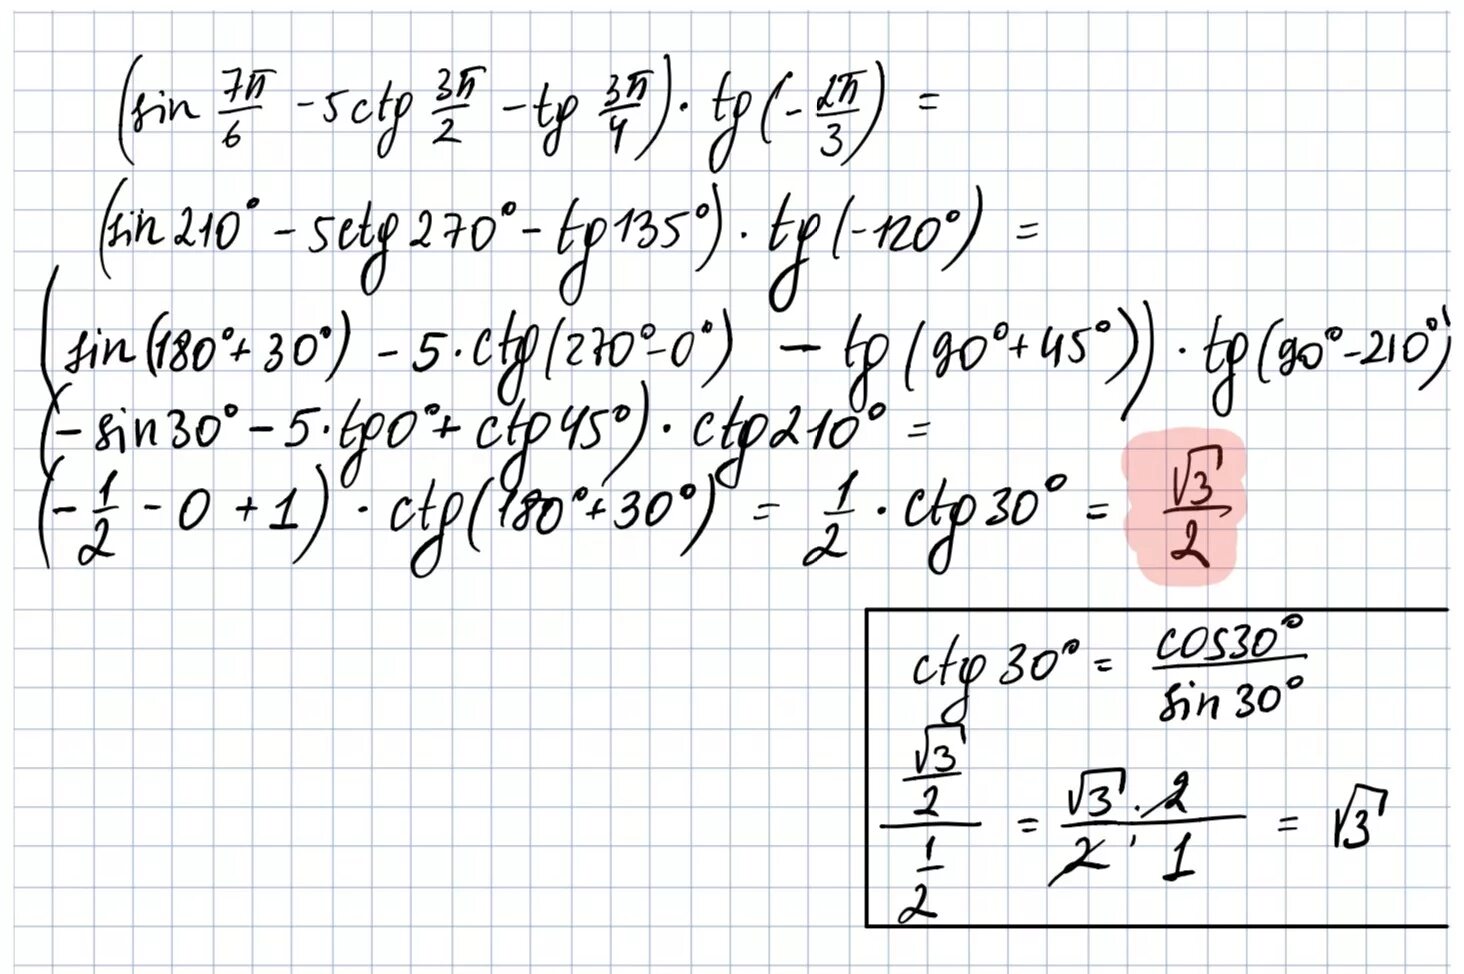 (sin 7π/6 - 5ctg 3π/2 - tg 3π/4) · tg(-2π/3) =
(sin 210° - 5ctg 270° - tg 135°) · tg(-120°) =
(sin(180°+30°) - 5·ctg(270°-0°) - tg(90°+45°)) · tg(90°-210°)
(-sin30° - 5·tg0° + ctg45°) · ctg210° =
(-1/2 - 0 + 1) · ctg(180°+30°) = 1/2 · ctg30° = √3/2
ctg30° = cos30°/sin30°
(√3/2)/(1/2) = (√3·2)/(2·1) = √3